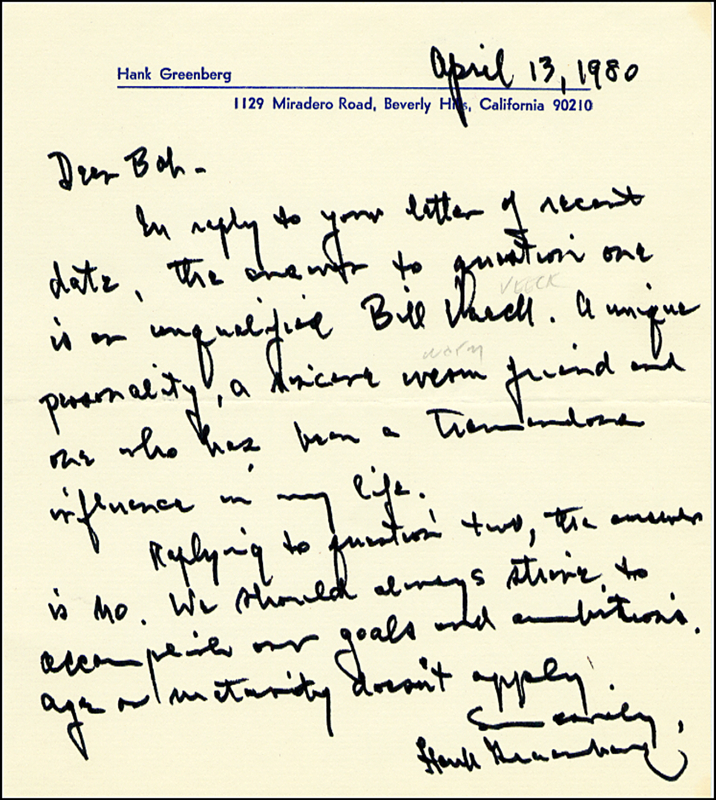 Hank Greenberg
April 13, 1980
1129 Miradero Road, Beverly Hills, California 90210
Dear Bob -
In reply to your letter of recent
date, the answer to question one
VEECK
is an unqualified Bill Veeck. A unique
warm
personality, a sincere warm friend and
one who has been a tremendous
influence in my life.
Replying to question two, the answer
is no. We should always strive to
accomplish our goals and ambitions.
age or maturity doesn't apply
Sincerely,
Hank Greenberg